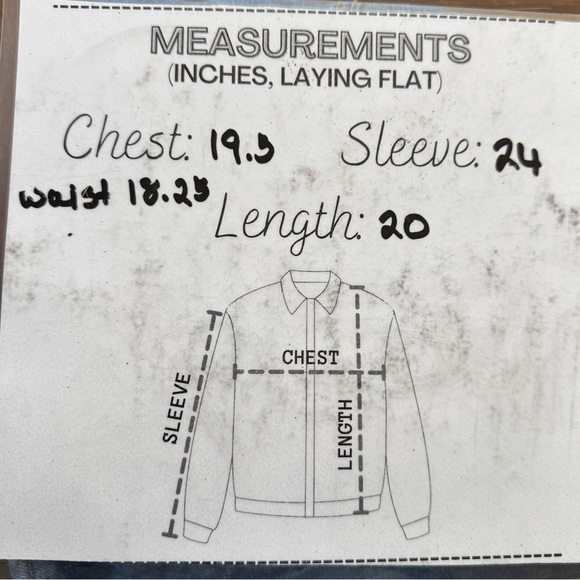 MEASUREMENTS
(INCHES, LAYING FLAT)
Chest: 19.5 Sleeve: 24
waist 18.25
Length: 20
CHEST
SLEEVE
LENGTH